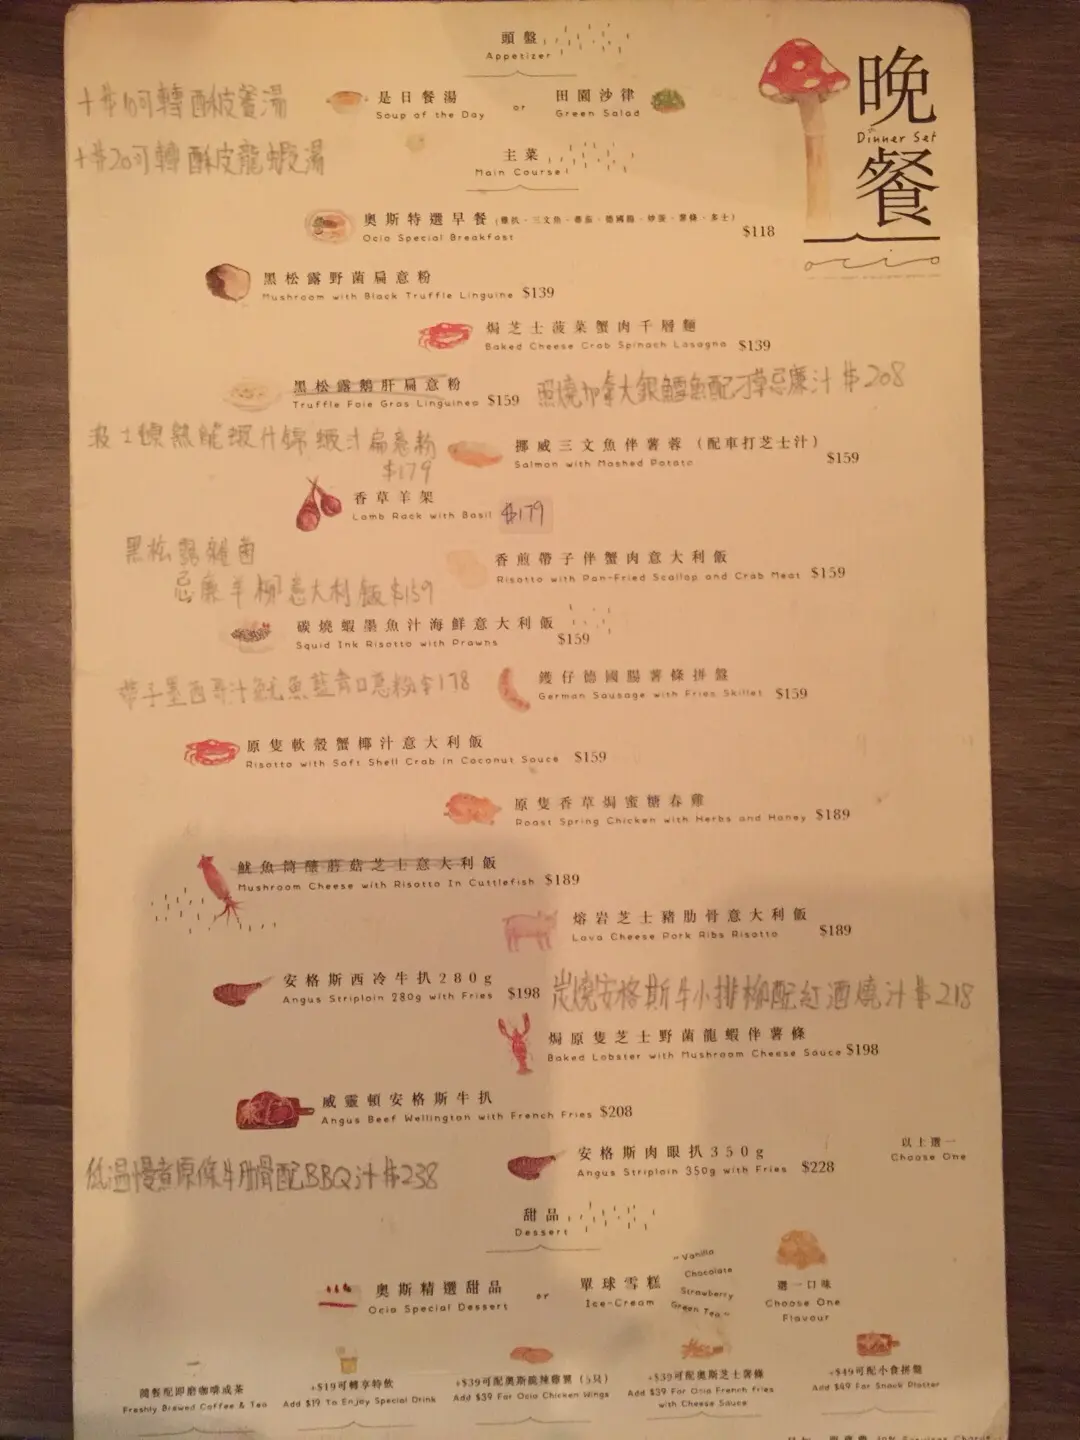 頭盤
Appetizer
晚餐
Dinner Set
ocio
+$10可轉酥皮餐湯
是日餐湯 or 田園沙律
Soup of the Day
Green Salad
+$20可轉酥皮龍蝦湯
主菜
Main Course
奧斯特選早餐
Ocio Special Breakfast $118
黑松露野菌扁意粉
Mushroom with Black Truffle Linguine $139
焗芝士菠菜蟹肉千層麵
Baked Cheese Crab Spinach Lasagna $139
黑松露鵝肝扁意粉
Truffle Foie Gras Linguinea $159
照燒加拿大銀鱈魚配刁草忌廉汁 $208
蝦汁扁意粉
$179
挪威三文魚伴薯蓉（配車打芝士汁）
Salmon with Mashed Potato $159
香草羊架
Lamb Rack with Basil $179
黑松露雜菌
忌廉羊柳意大利飯 $159
香煎帶子伴蟹肉意大利飯
Risotto with Pan-Fried Scallop and Crab Meat $159
碳燒蝦墨魚汁海鮮意大利飯
Squid Ink Risotto with Prawns $159
帶子墨西哥汁魷魚藍青口意粉 $178
鑊仔德國腸薯條拼盤
German Sausage with Fries Skillet $159
原隻軟殼蟹椰汁意大利飯
Risotto with Soft Shell Crab in Coconut Sauce $159
原隻香草焗蜜糖春雞
Roast Spring Chicken with Herbs and Honey $189
魷魚筒釀蘑菇芝士意大利飯
Mushroom Cheese with Risotto In Cuttlefish $189
熔岩芝士豬肋骨意大利飯
Lava Cheese Pork Ribs Risotto $189
安格斯西冷牛扒280g
Angus Striploin 280g with Fries $198
炭燒安格斯牛小排柳配紅酒燒汁 $218
焗原隻芝士野菌龍蝦伴薯條
Baked Lobster with Mushroom Cheese Sauce $198
威靈頓安格斯牛扒
Angus Beef Wellington with French Fries $208
安格斯肉眼扒350g
Angus Striploin 350g with Fries $228
以上選一
Choose One
低温慢煮原條牛肋骨配BBQ汁 $238
甜品
Dessert
奧斯精選甜品 or 單球雪糕
Ocio Special Dessert
Ice-Cream
"Vanilla
Chocolate
Strawberry
Green Tea"
選一口味
Choose One
Flavour
隨餐配即磨咖啡或茶
Freshly Brewed Coffee & Tea
+$19可轉享特飲
Add $19 To Enjoy Special Drink
+$39可配奧斯脆辣雞翼（5只）
Add $39 For Ocio Chicken Wings
+$39可配奧斯芝士薯條
Add $39 For Ocio French fries
with Cheese Sauce
+$49可配小食拼盤
Add $49 For Snack Platter